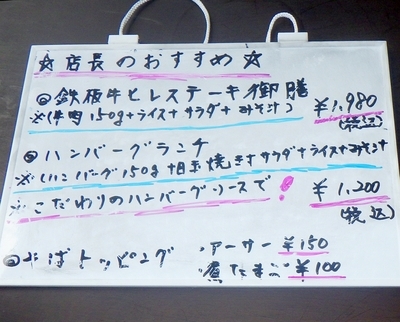 ☆店長のおすすめ☆
◎鉄板牛ヒレステーキ御膳 ¥1,980
※(牛肉150g+ライス+サラダ+みそ汁) (税込)
◎ハンバーグランチ
※(ハンバーグ150g+目玉焼き+サラダ+ライス+みそ汁
※こだわりのハンバーグソースで! ¥1,200
(税込)
◎そばトッピング ・アーサー ¥150
煮たまご ¥100